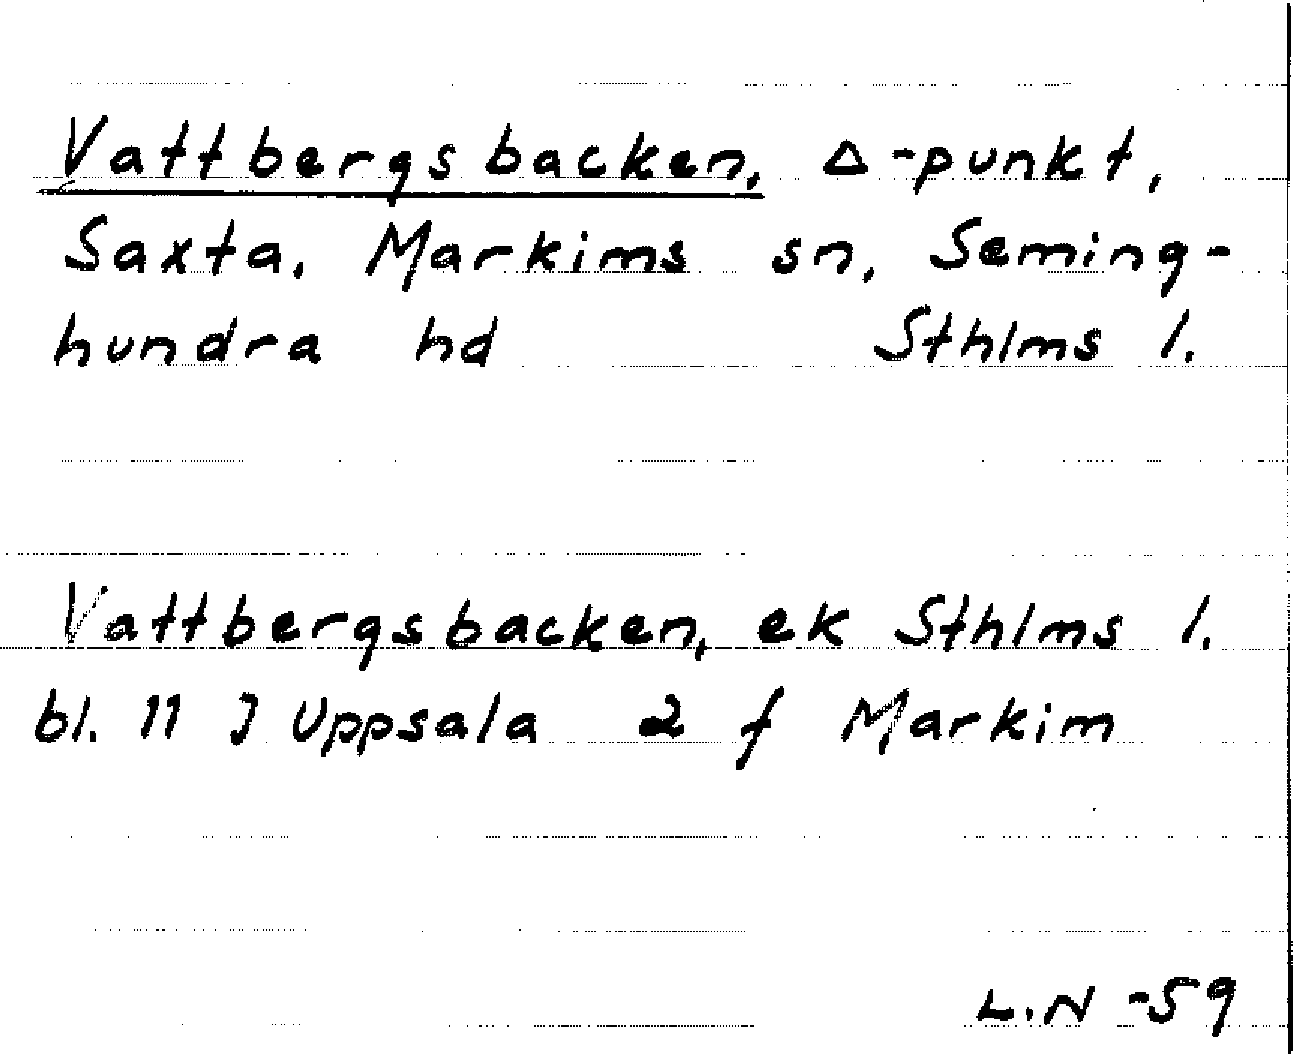 Vattbergsbacken, Δ-punkt,
Saxta, Markims sn, Seming-
hundra hd Sthlms l.
Vattbergsbacken, ek Sthlms l.
bl. 11 J Uppsala 2 f Markim
L.N -59